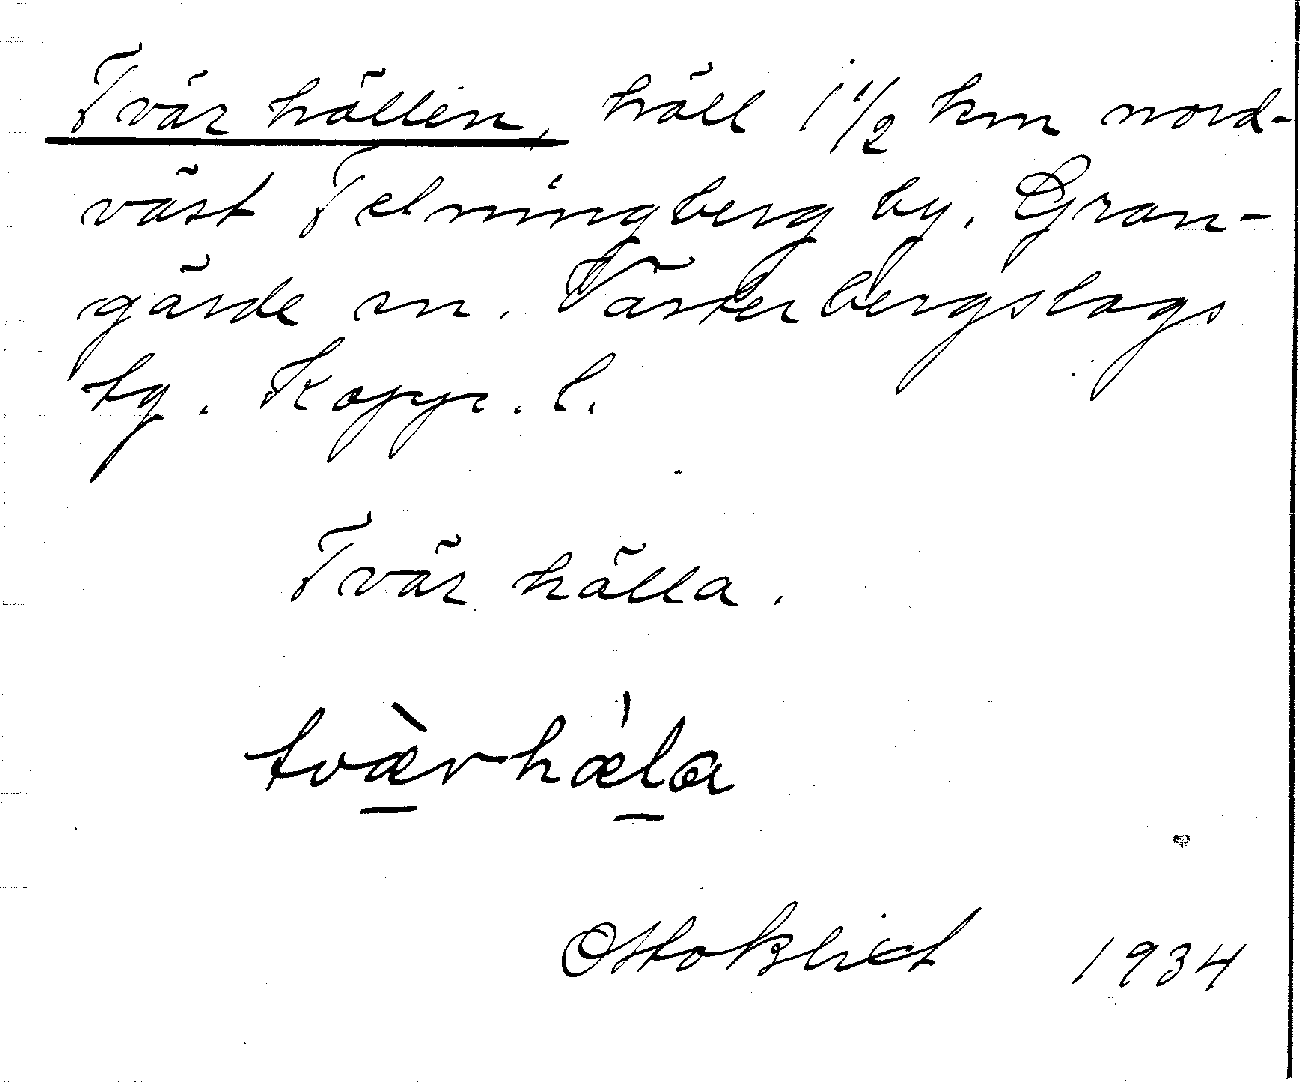 Tvär hällen, häll 1 1/2 km nord-
väst Telningberg by. Gran-
gärde sn. Västerbergslags
tg. Kopp. l.
Tvär hälla.
tvæ̀rhæ̍la
Otto Blixt 1934